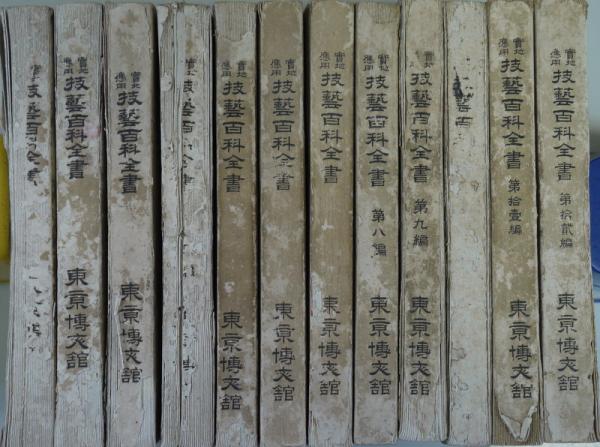 技藝百科全書
實地應用 技藝百科全書 東京博文館
實地應用 技藝百科全書 東京博文館
技藝百科全書
實地應用 技藝百科全書 東京博文館
實地應用 技藝百科全書 東京博文館
實地應用 技藝百科全書 東京博文館
實地應用 技藝百科全書 第八編 東京博文館
實地應用 技藝百科全書 第九編 東京博文館
藝百
實地應用 技藝百科全書 第拾壹編 東京博文館
實地應用 技藝百科全書 第拾貳編 東京博文館